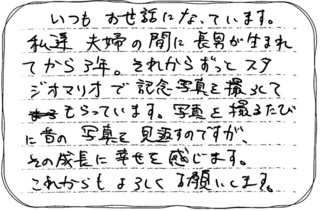 いつも お世話になっています。
私達 夫婦の間に 長男が生まれ
てから3年。それからずっと スタ
ジオマリオで 記念写真を撮らして
もらっています。写真を 撮るたび
に昔の 写真を 見返すのですが、
その成長に 幸せを 感じます。
これからも よろしく お願いします。